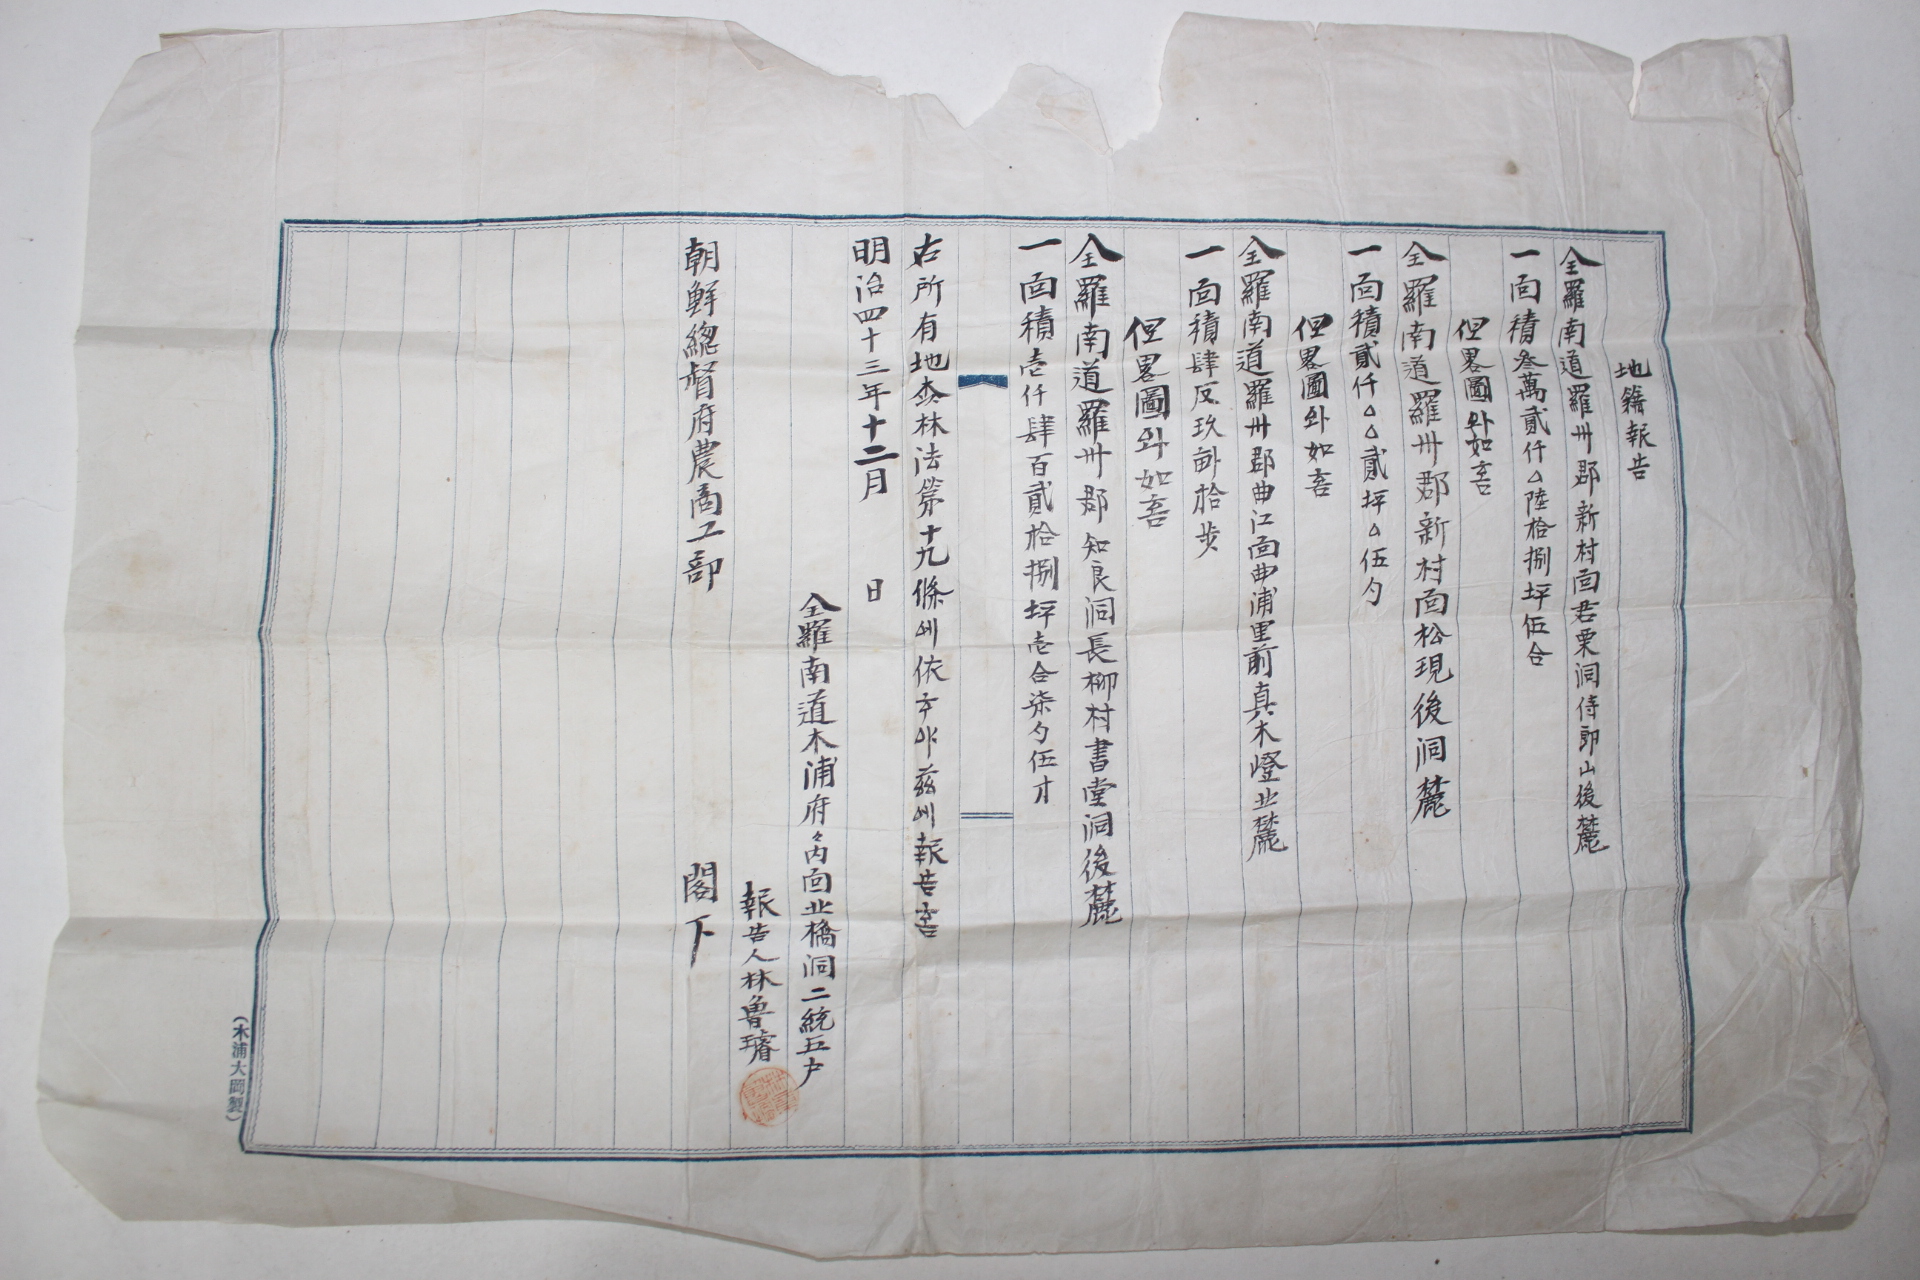 地籍報告
全羅南道羅州郡新村面君栗洞侍郎山後麓
一面積叄萬貳仟△陸拾捌坪伍合
但畧圖와如喜
全羅南道羅州郡新村面松現後洞麓
一面積貳仟△△貳坪△伍勺
但畧圖와如喜
全羅南道羅州郡曲江面曲浦里前真木嶝北麓
一面積肆反玖畝拾步
但畧圖와如喜
全羅南道羅州郡知良洞長柳村書堂洞後麓
一面積壱仟肆百貳拾捌坪壱合柒勺伍才
右所有地森林法第十九條에依하야玆에報告홈
明治四十三年十二月 日
全羅南道木浦府々內面北橋洞二統五户
報告人林魯璿
朝鮮總督府農商工部 閣下
(木浦大岡製)